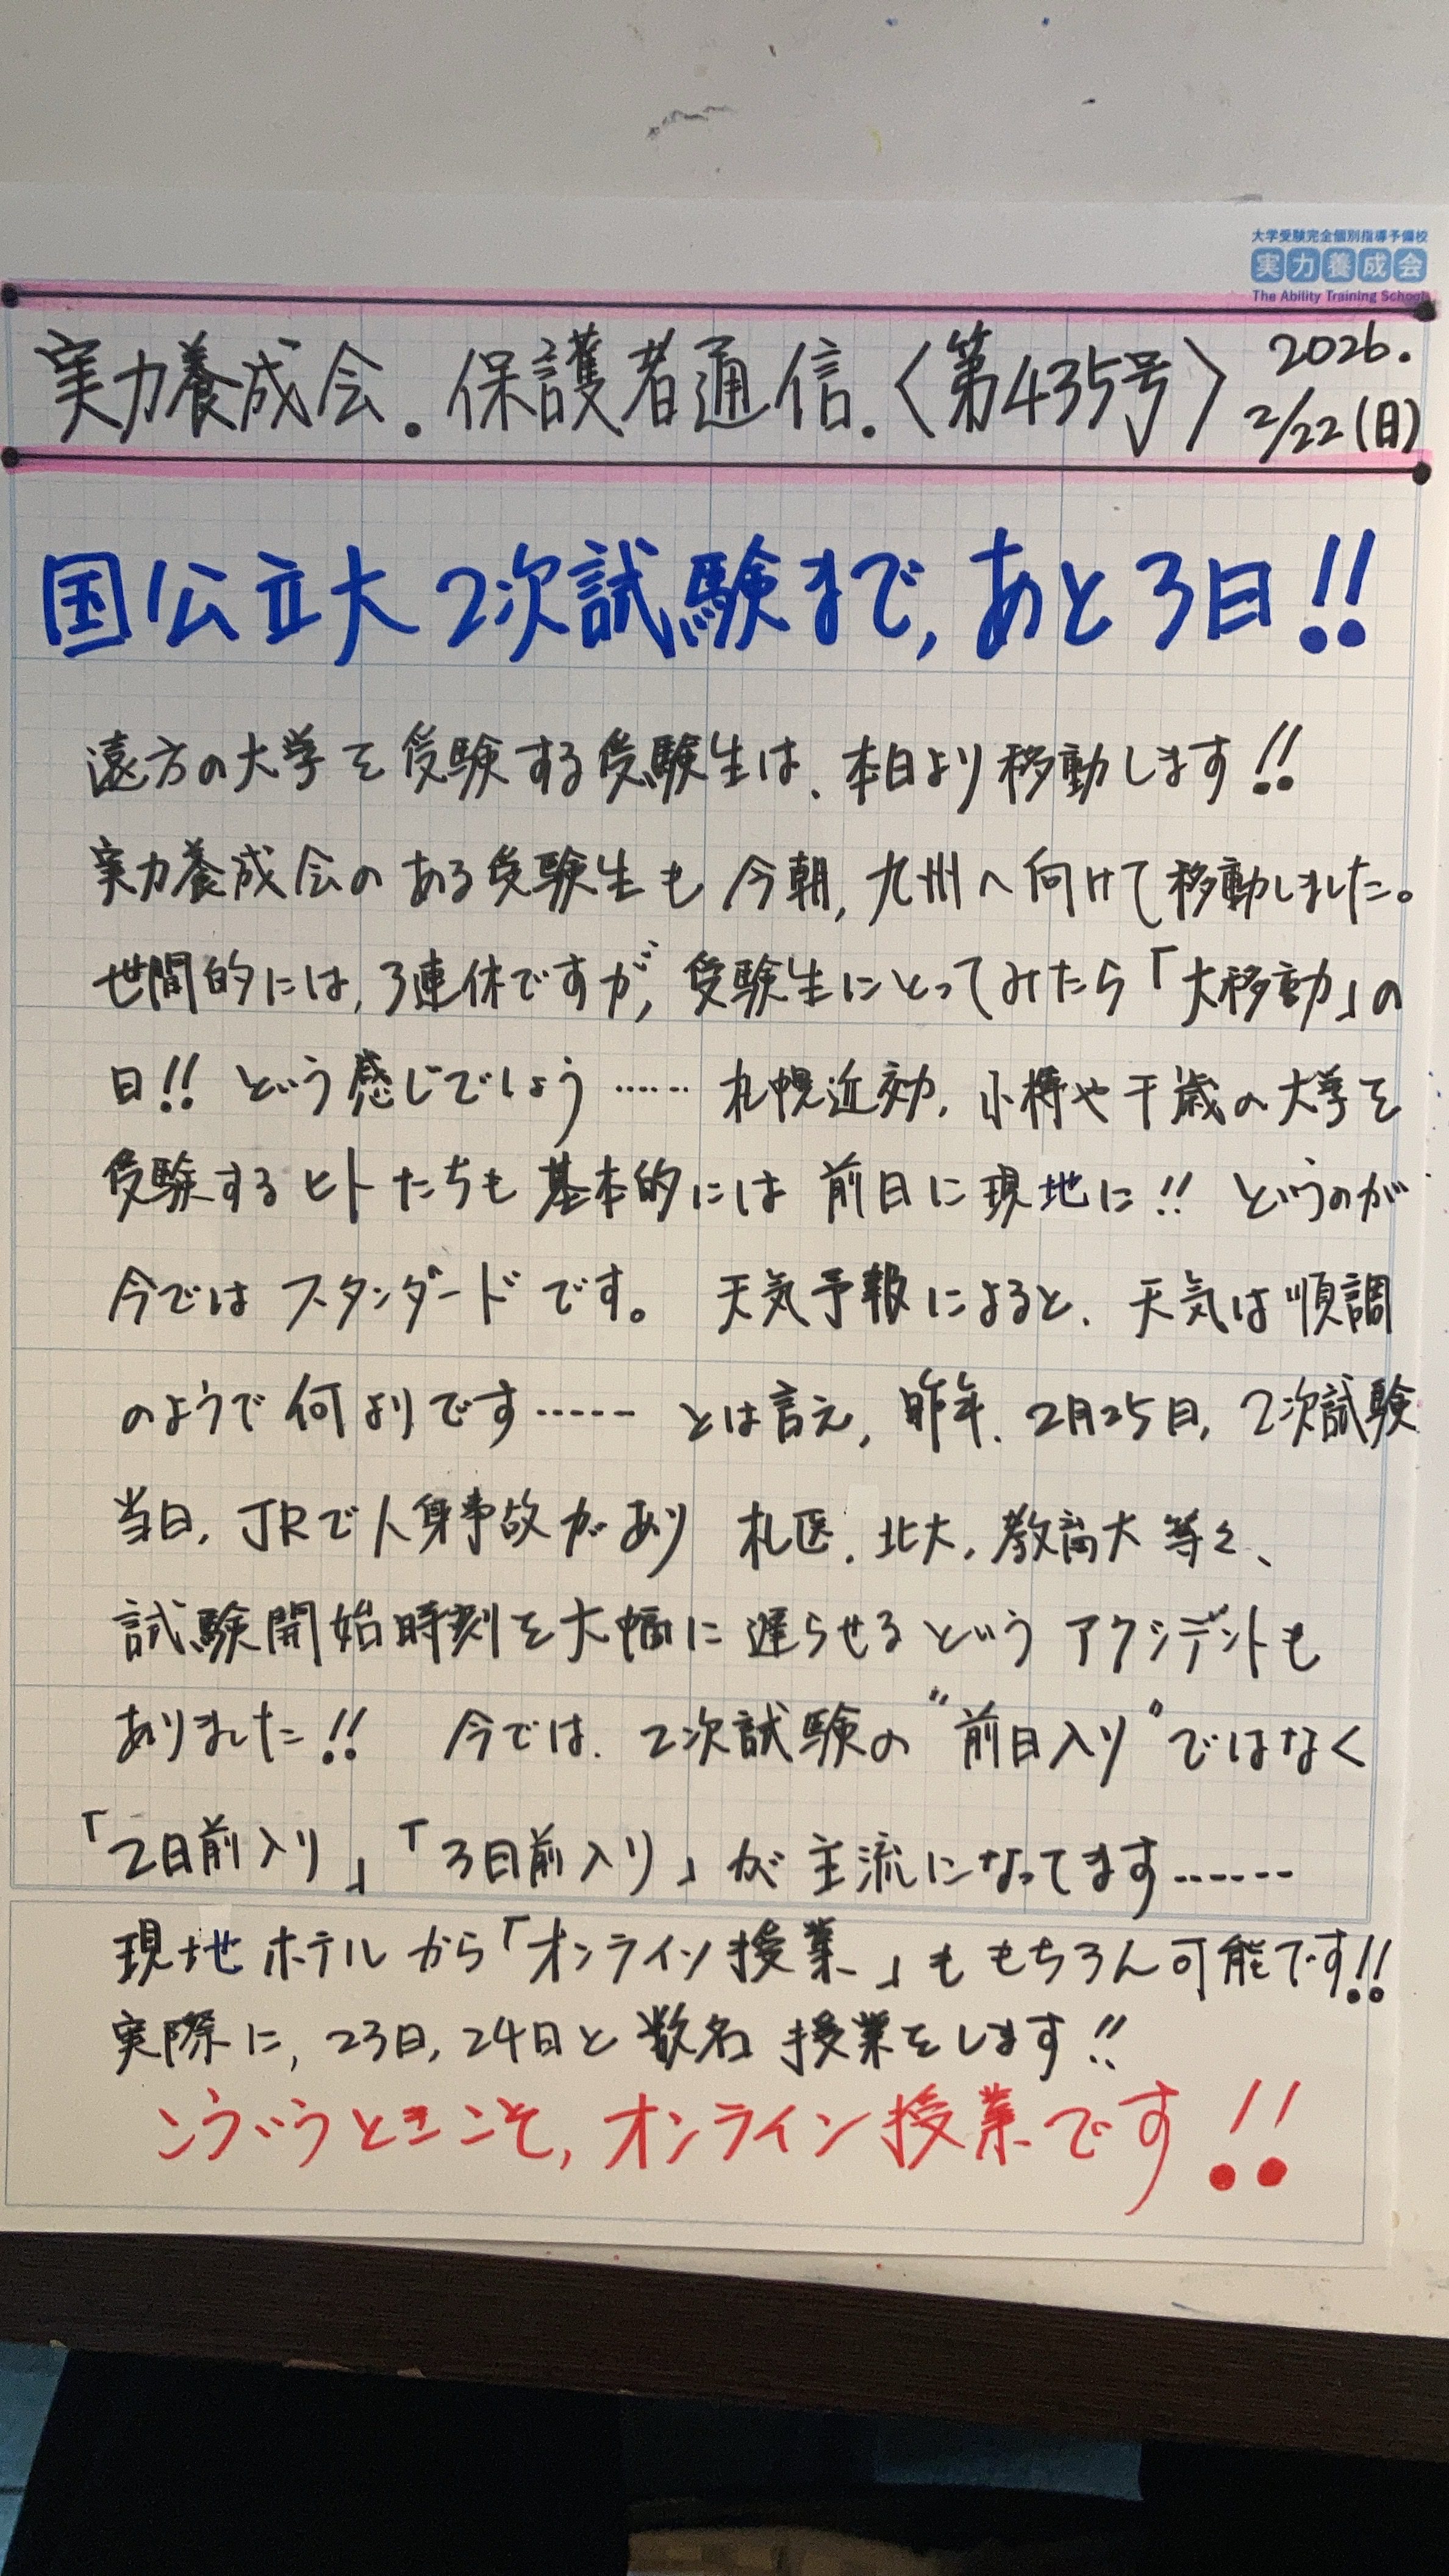 大学受験完全個別指導予備校
実力養成会
The Ability Training School
実力養成会.保護者通信.〈第435号〉2026.
2/22(日)
国公立大2次試験まで,あと3日!!
遠方の大学を受験する受験生は、本日より移動します!!
実力養成会のある受験生も今朝,九州へ向けて移動しました。
世間的には,3連休ですが,受験生にとってみたら「大移動」の
日!!という感じでしょう……札幌近効,小樽や千歳の大学を
受験するヒトたちも基本的には前日に現地に!!というのが
今ではスタンダードです。天気予報によると、天気は順調
のようで何よりです……とは言え,昨年、2月25日,2次試験
当日,JRで人身事故があり札医,北大,教育大等々、
試験開始時刻を大幅に遅らせるというアクシデントも
ありました!!今では、2次試験の"前日入り"ではなく
「2日前入り」「3日前入り」が主流になってます……
現地ホテルから「オンライン授業」ももちろん可能です!!
実際に,23日,24日と数名授業をします!!
こういうときこそ,オンライン授業です!!